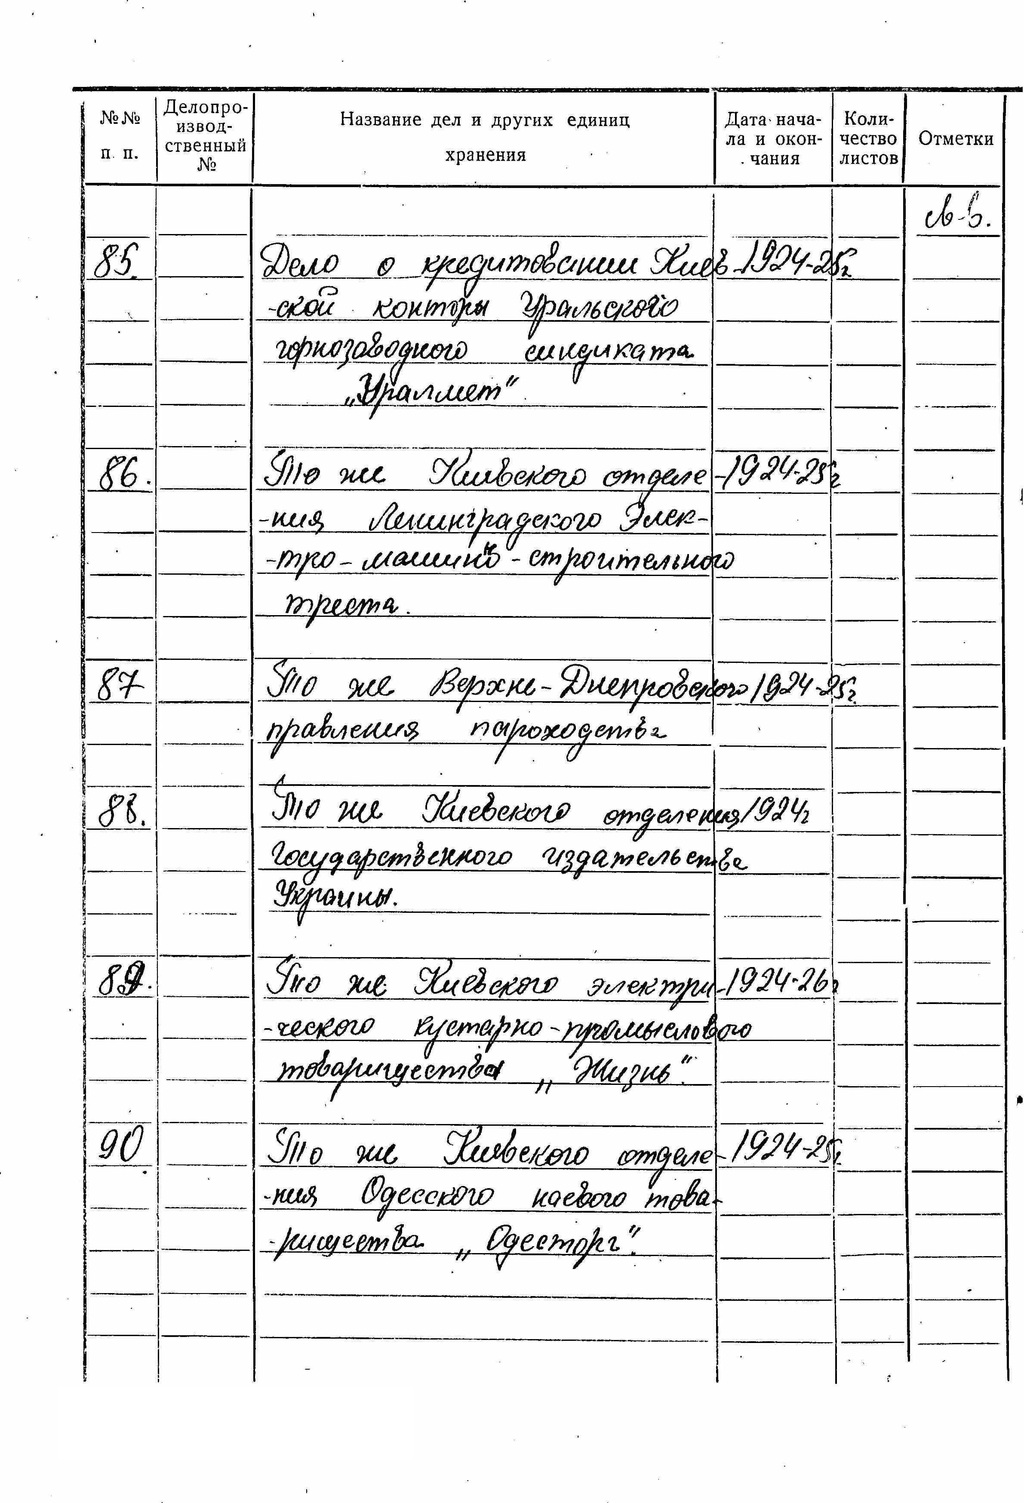 №№ п. п. Делопроизвод-ственный № Название дел и других единиц хранения Дата начала и окончания Количество листов Отметки
85. Дело о кредитовании Киев- 1924-25г
-ской конторы Уральского
горнозаводного синдиката
„Уралмет"
86. То же Киевского отделе- 1924-25г
-ния Ленинградского Элек-
-тро-машино-строительного
треста.
87 То же Верхне-Днепровского 1924-25г.
правления пароходства
88. То же Киевского отделения 1924г
Государственного издательства
Украины.
89. То же Киевского электри- 1924-26г
-ческого кустарно-промыслового
товарищества „Жизнь".
90 То же Киевского отделе- 1924-25г.
-ния Одесского паевого това-
-рищества „Одесторг".